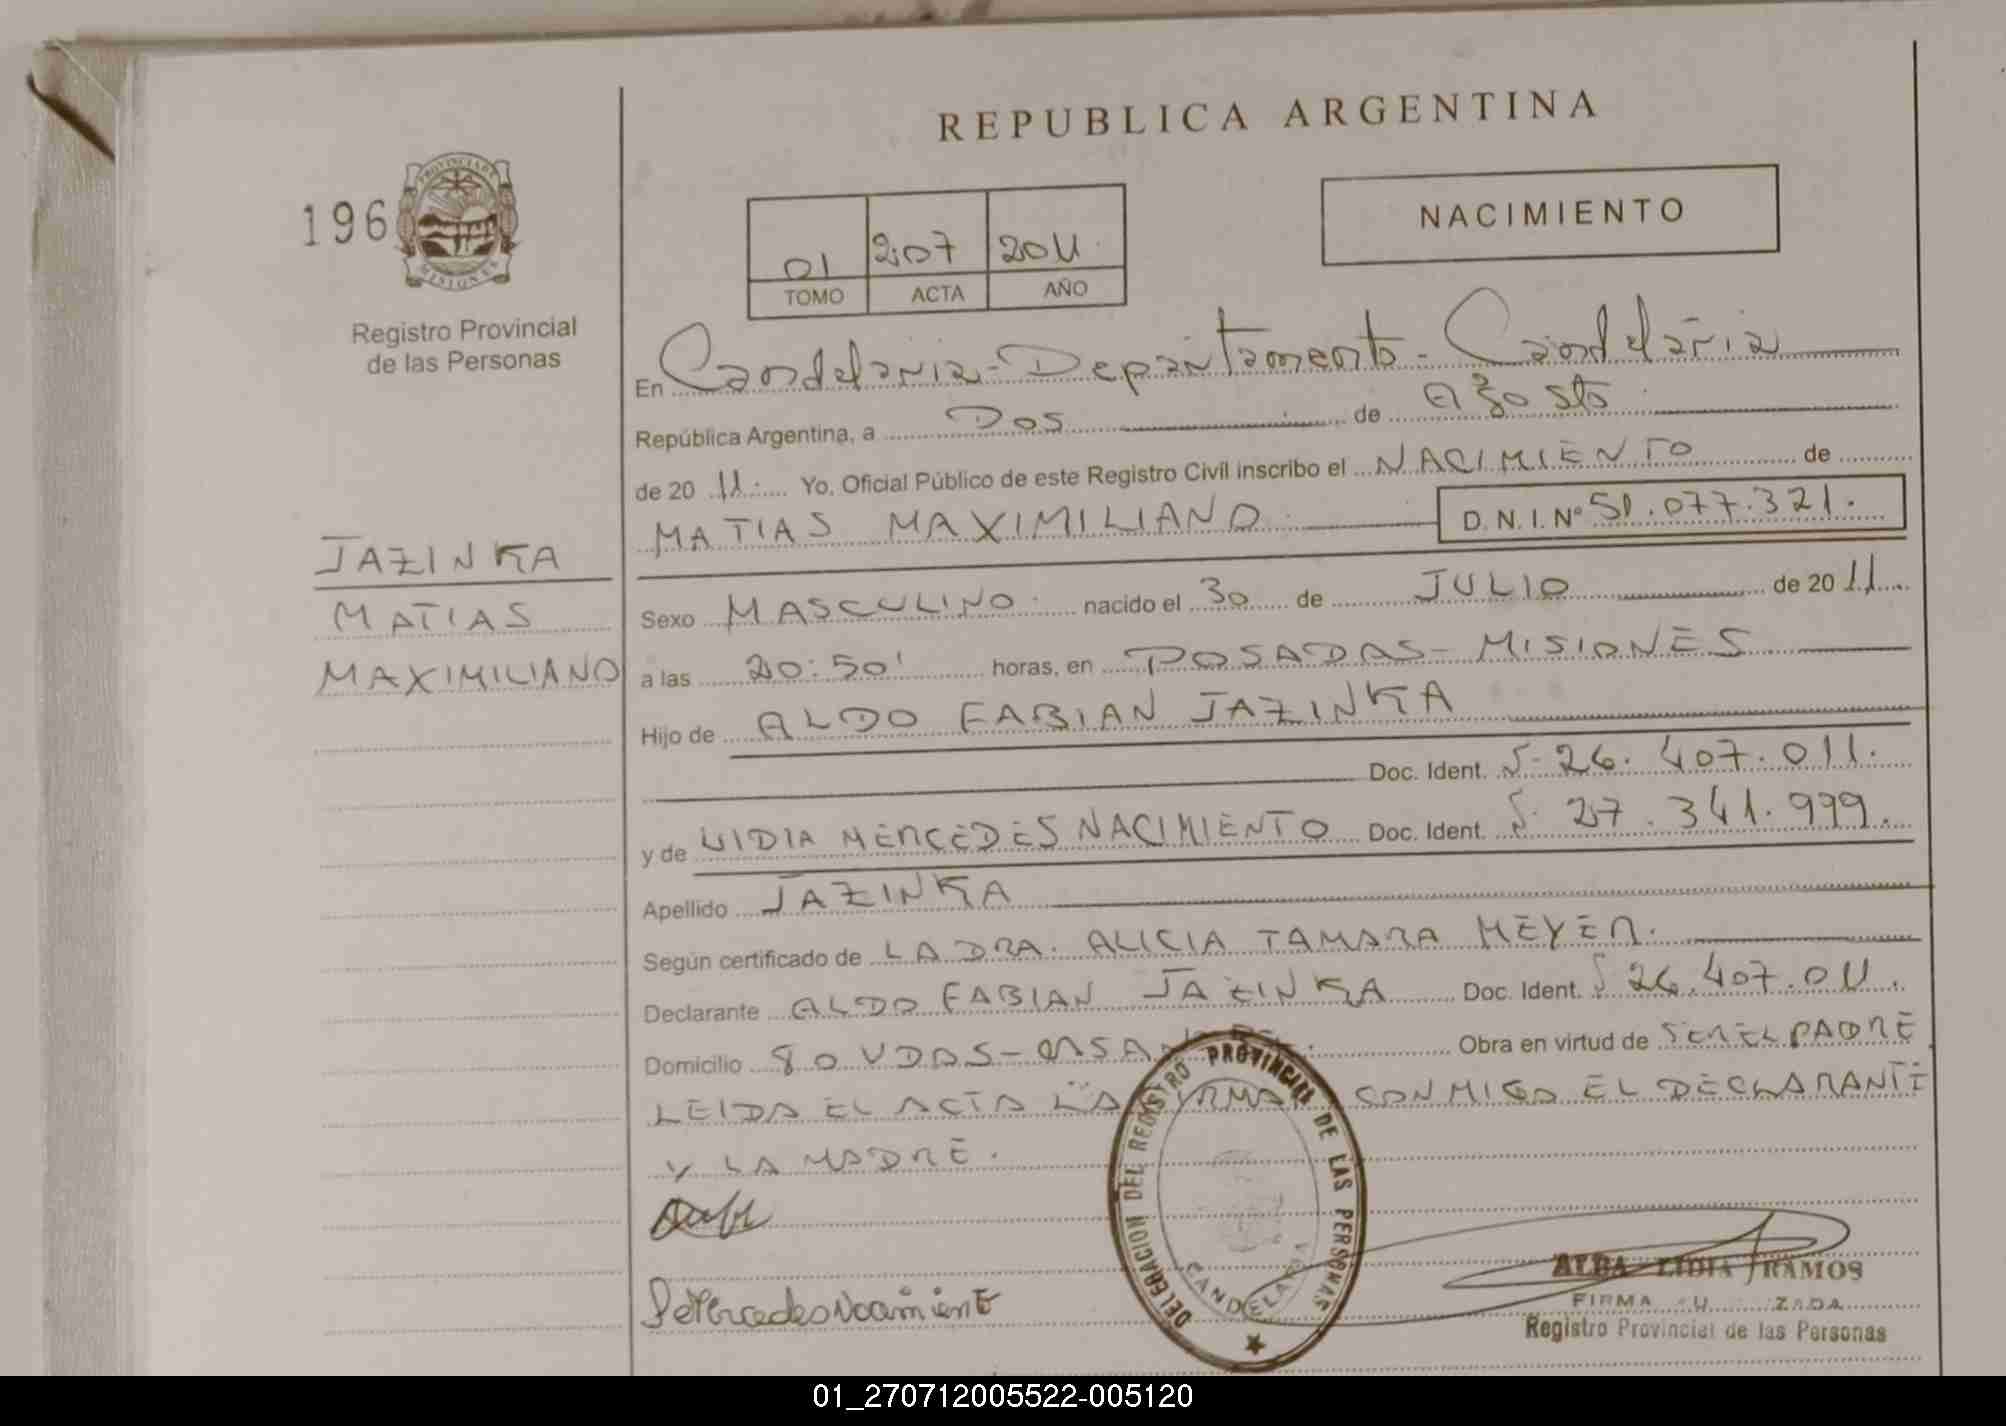 REPUBLICA ARGENTINA
196
PROVINCIA DE
MISIONES
Registro Provincial
de las Personas
01 207 2011
TOMO ACTA AÑO
NACIMIENTO
En Candelaria - Departamento - Candelaria
República Argentina, a Dos de Agosto
de 20 11. Yo, Oficial Público de este Registro Civil inscribo el NACIMIENTO de
MATIAS MAXIMILIANO D. N. I. Nº 51.077.321.
JAZINKA
MATIAS
MAXIMILIANO
Sexo MASCULINO nacido el 30 de JULIO de 20 11
a las 20:50' horas, en POSADAS - MISIONES
Hijo de ALDO FABIAN JAZINKA
Doc. Ident. 26.407.011.
y de LIDIA MERCEDES NACIMIENTO Doc. Ident. 27.341.999.
Apellido JAZINKA
Según certificado de LA DRA. ALICIA TAMARA MEYER.
Declarante ALDO FABIAN JAZINKA Doc. Ident. 26.407.011.
Domicilio 80 VDAS - Obra en virtud de SER EL PADRE
LEIDA EL ACTA LA FIRMAN CONMIGO EL DECLARANTE
Y LA MADRE.
DELEGACION DEL REGISTRO PROVINCIAL DE LAS PERSONAS
CANDELARIA
ALBA LIDIA RAMOS
FIRMA
Registro Provincial de las Personas
01_270712005522-005120